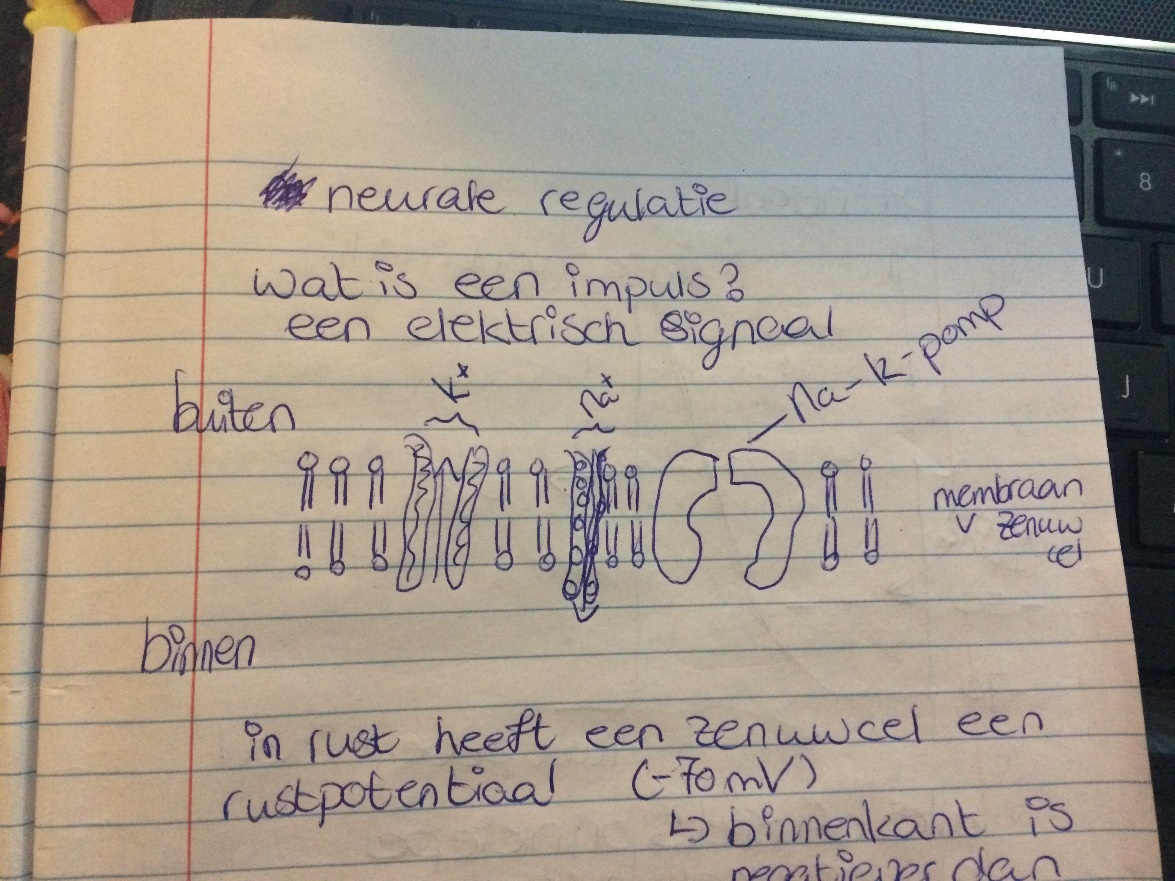 neurale regulatie
wat is een impuls?
een elektrisch signaal
Na-K-pomp
K+
Na+
buiten
membraan
v zenuw
cel
binnen
in rust heeft een zenuwcel een
rustpotentiaal (-70mV)
↳ binnenkant is
negatiever dan
8
U
J